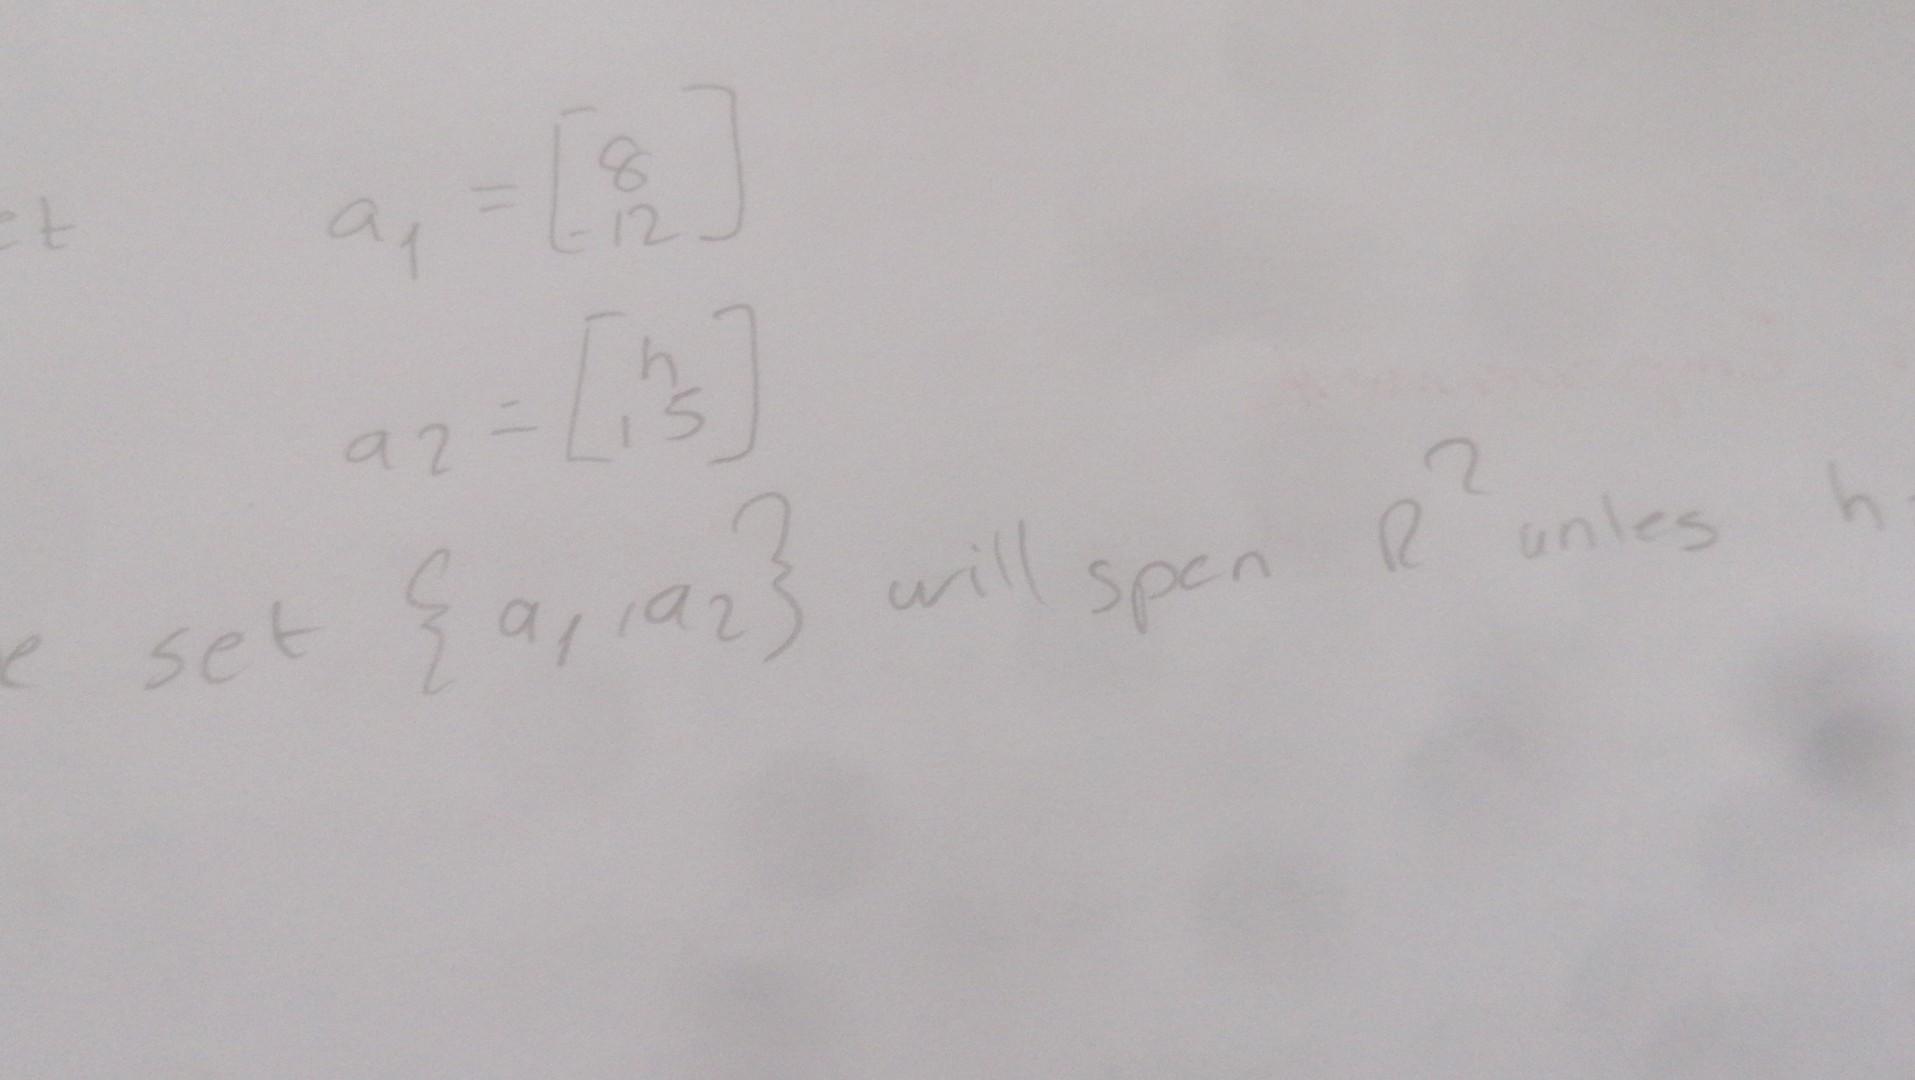 et a1 = [8
-12]
a2 = [h
15]
e set {a1, a2} will span R² unles h